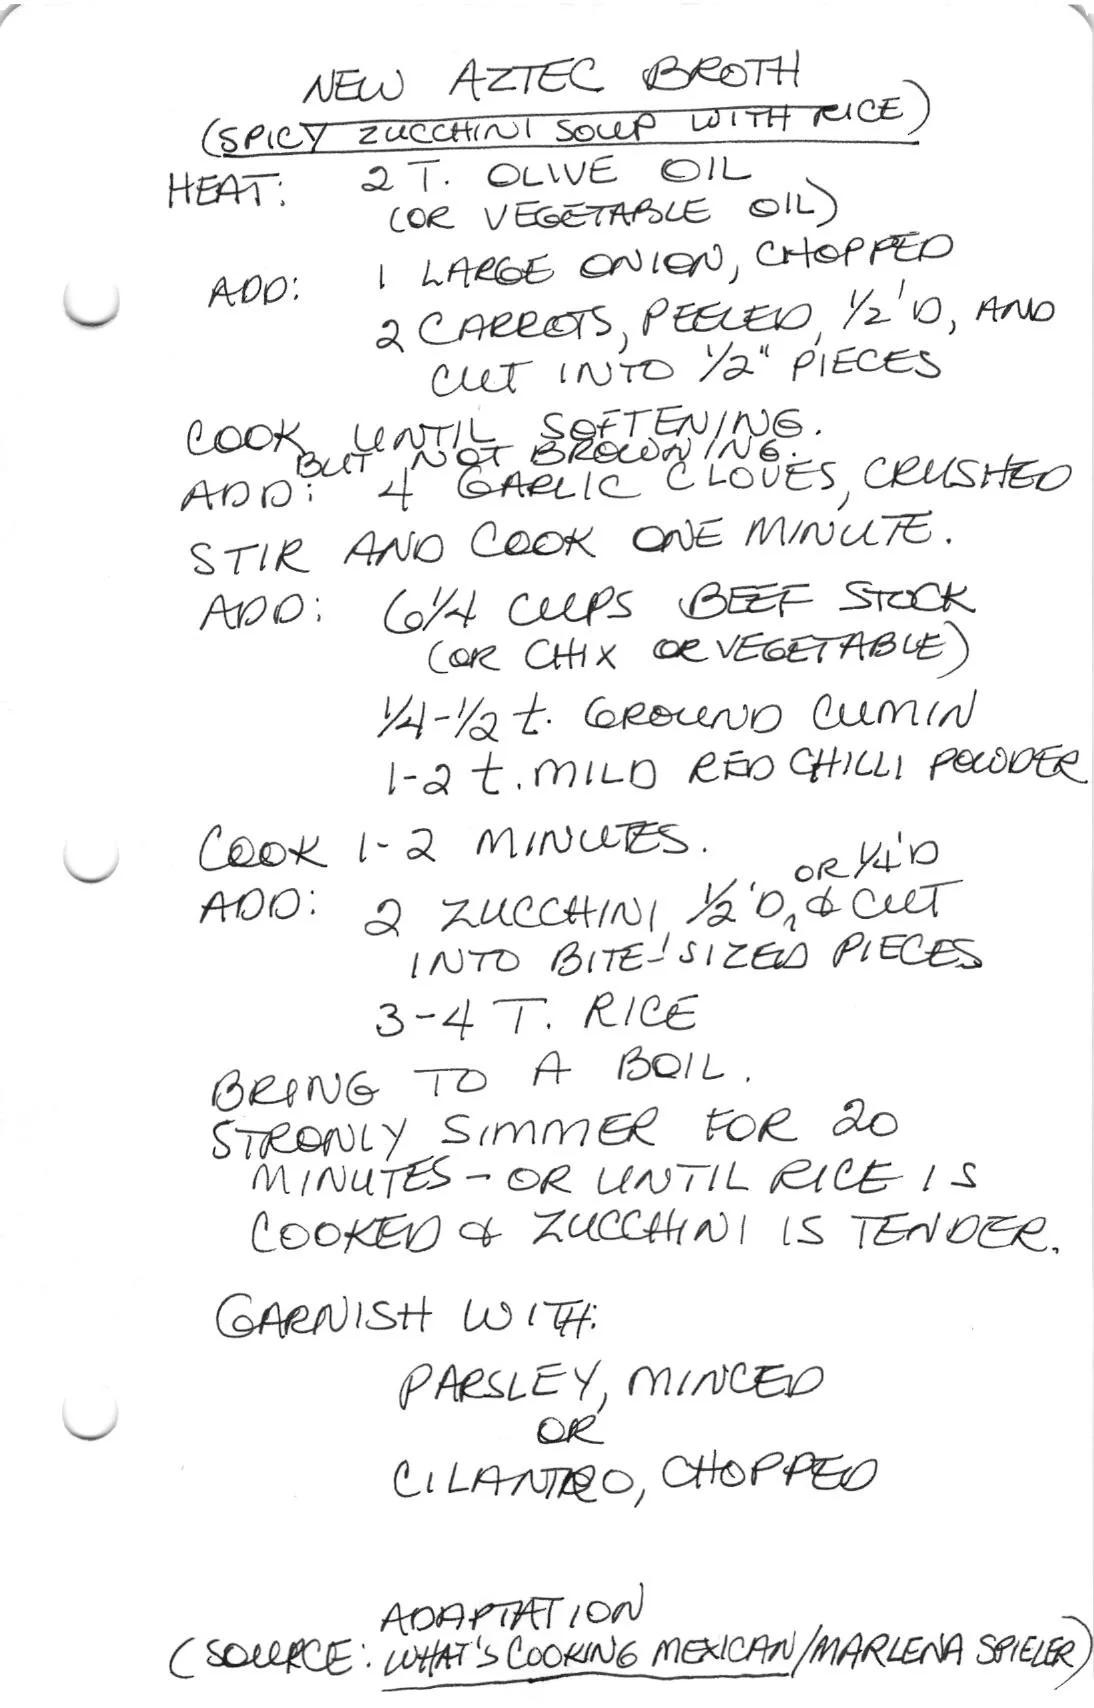 NEW AZTEC BROTH
(SPICY ZUCCHINI SOUP WITH RICE)
HEAT: 2 T. OLIVE OIL
(OR VEGETABLE OIL)
ADD: 1 LARGE ONION, CHOPPED
2 CARROTS, PEELED, 1/2'D, AND
CUT INTO 1/2" PIECES
COOK UNTIL SOFTENING.
BUT NOT BROWNING.
ADD: 4 GARLIC CLOVES, CRUSHED
STIR AND COOK ONE MINUTE.
ADD: 6 1/4 CUPS BEEF STOCK
(OR CHIX OR VEGETABLE)
1/4-1/2 t. GROUND CUMIN
1-2 t. MILD RED CHILLI POWDER
COOK 1-2 MINUTES.
OR 1/4'D
ADD: 2 ZUCCHINI, 1/2'D, & CUT
INTO BITE-SIZED PIECES
3-4 T. RICE
BRING TO A BOIL.
STRONLY SIMMER FOR 20
MINUTES - OR UNTIL RICE IS
COOKED & ZUCCHINI IS TENDER.
GARNISH WITH:
PARSLEY, MINCED
OR
CILANTRO, CHOPPED
ADAPTATION
(SOURCE: WHAT'S COOKING MEXICAN/MARLENA SPIELER)